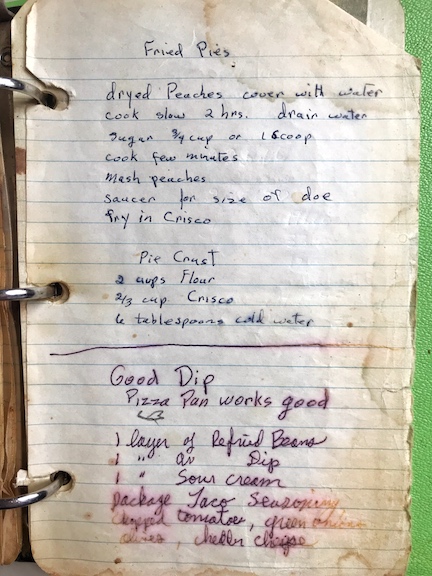 Fried Pies
dryed Peaches cover with water
cook slow 2 hrs. drain water
Sugar 3/4 cup or 1 Scoop
cook few minutes
Mash peaches
saucer for size of doe
fry in Crisco
Pie Crust
2 cups Flour
2/3 cup Crisco
6 tablespoons cold water
Good Dip
Pizza Pan works good
1 layer of Refried Beans
1 " Dip
1 " Sour cream
package Taco Seasoning
chopped tomatoes, green onions
olives, chedder cheese